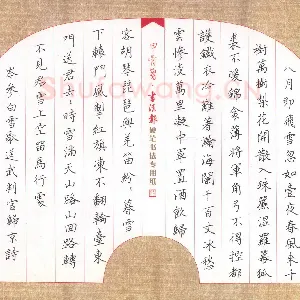 八月即飛雪忽如壹夜春風來千
樹萬樹梨花開散入珠簾溼羅幕狐
裘不暖錦衾薄將軍角弓不得控都
護鐵衣冷難著瀚海闌干百丈冰愁
雲慘淡萬里凝中軍置酒飲歸
書法報 硬筆書法專用紙
客胡琴琵琶與羌笛紛々暮雪
下轅門風掣紅旗凍不翻輪臺東
門送君去々時雪滿天山路山回路轉
不見君雪上空留馬行處
岑參白雪歌送武判官歸京詩